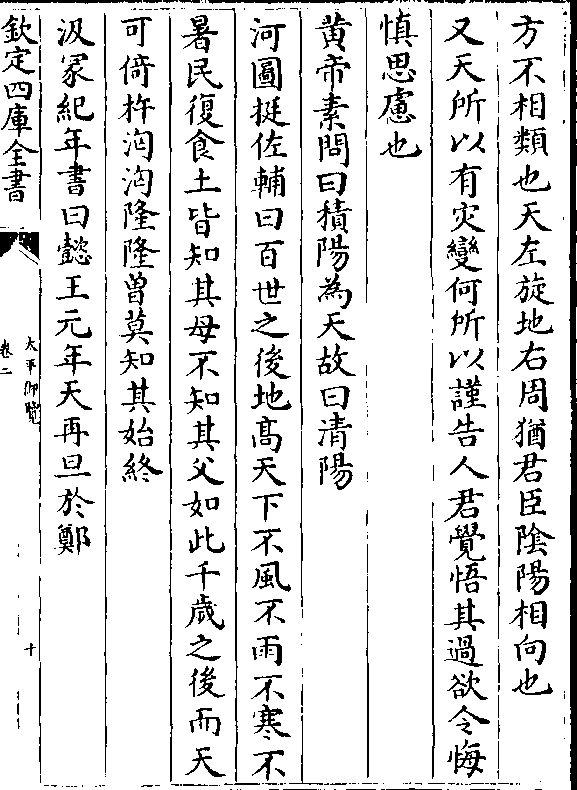 方不相類也天左旋地右周猶君臣陰陽相向也
又天所以有灾變何所以謹告人君覺悟其過欲令悔
慎思慮也
黃帝素問曰積陽為天故曰清陽
河圖挺佐輔曰百世之後地髙天下不風不雨不寒不
暑民復食土皆知其母不知其父如此千歳之後而天
可倚杵洶洶隆隆曾莫知其始終
汲冢紀年書曰懿王元年天再旦於鄭
欽定四庫全書
太平御覽
卷二
十